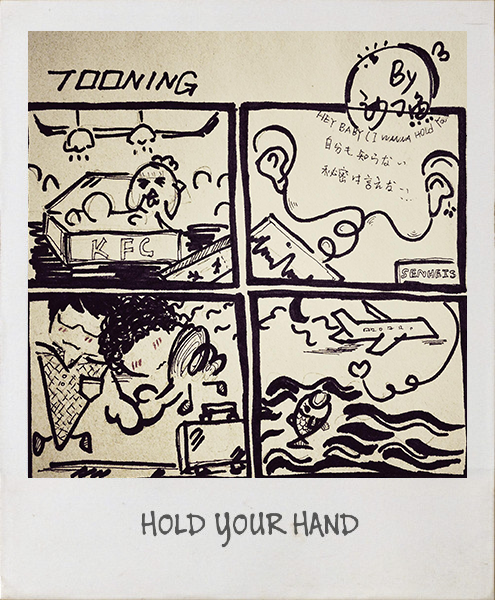 TOONING
By
HEY BABY I WANNA HOLD YOU
自分も知らない
秘密は言えない...
KFC
SENHEIS
HOLD YOUR HAND